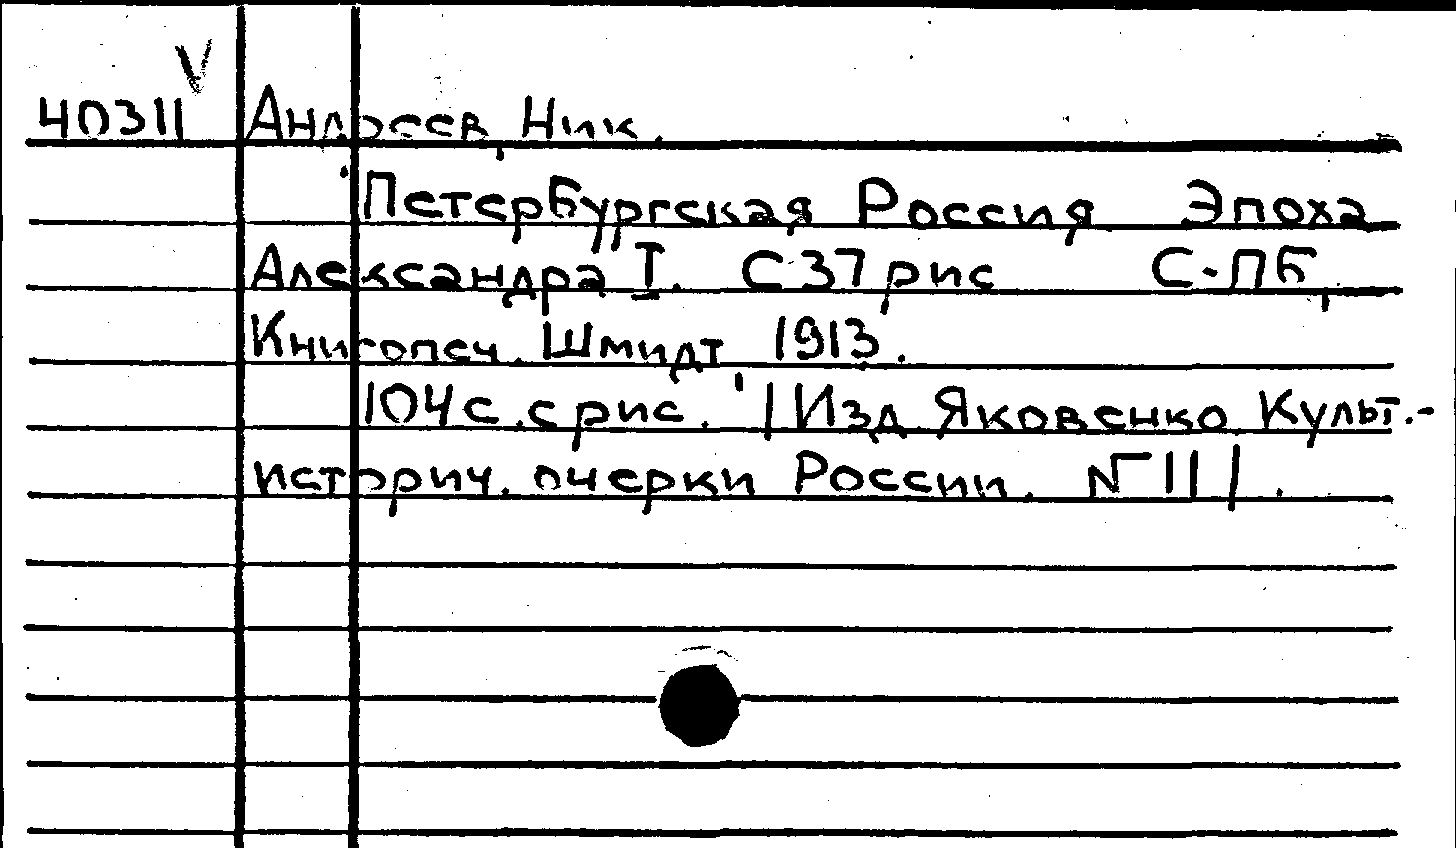 V
40311 Андреев, Ник.
Петербургская Россия Эпоха
Александра I. С 37 рис С-ПБ,
Книгопеч. Шмидт 1913.
104 с. с рис. | Изд. Яковенко. Культ.-
историч. очерки России. № II | .